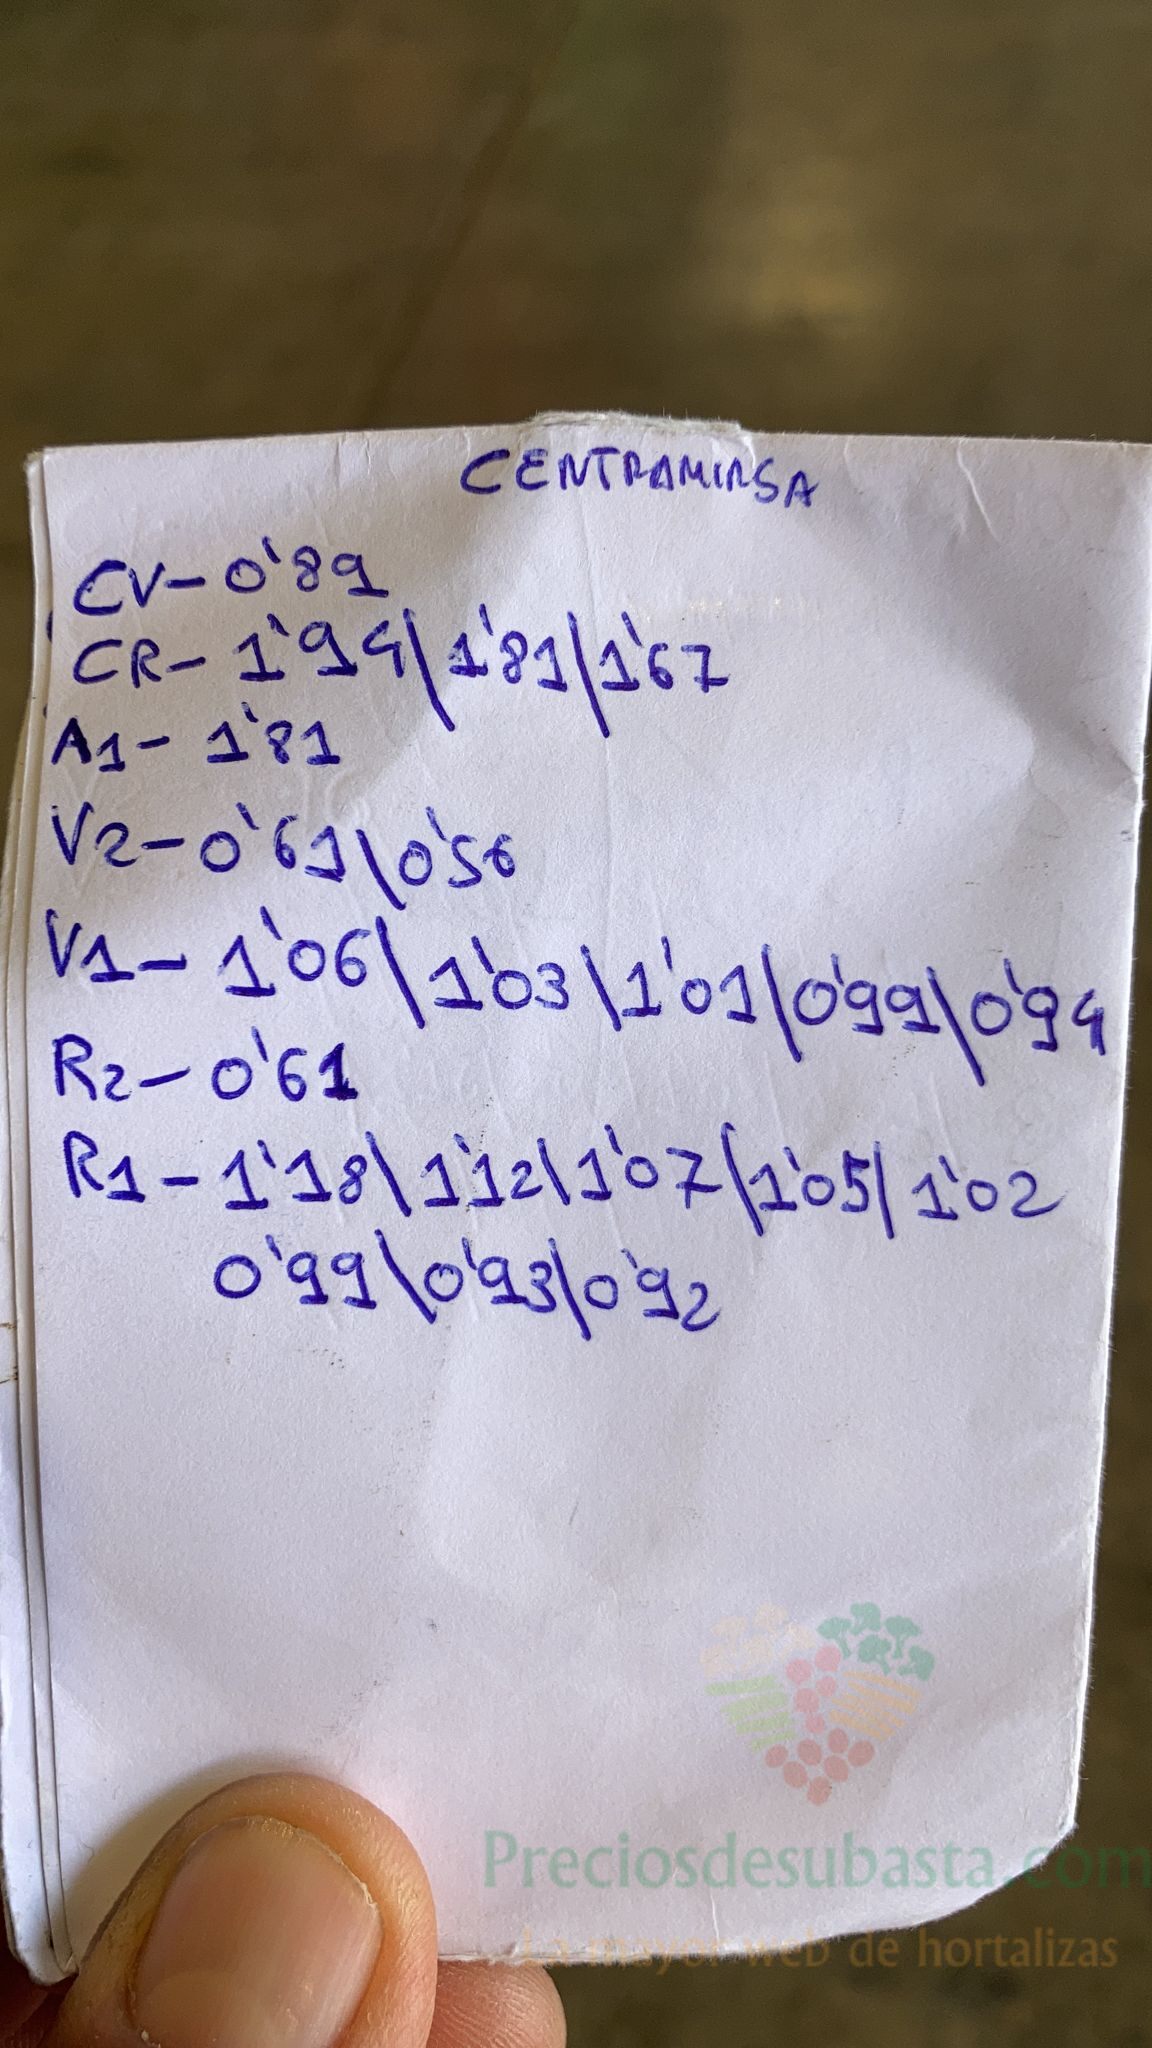 CENTRAMIRSA
CV- 0'89
CR- 1'94/1'81/1'67
A1- 1'81
V2- 0'61/0'56
V1- 1'06/1'03/1'01/0'99/0'94
R2- 0'61
R1- 1'18/1'12/1'07/1'05/1'02
0'99/0'93/0'92
Preciosdesubasta.com
La mayor web de hortalizas